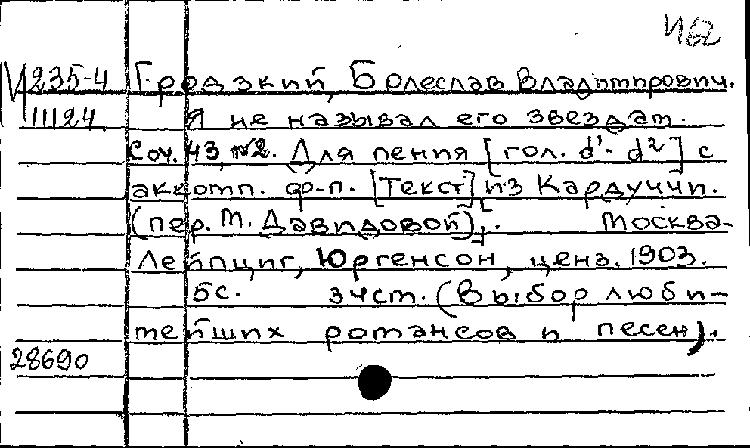 И62
И 235-4 Гродзкий, Болеслав Владимирович.
11124 Я не называл его звездам.
Соч. 43, №2. Для пения [гол. d¹- d²] с
аккомп. ф-п. [Текст] из Кардуччи.
(пер. М. Давидовой). Москва-
Лейпциг, Юргенсон, ценз. 1903.
5с. эчст. (Выбор люби-
мейших романсов и песен).
28690